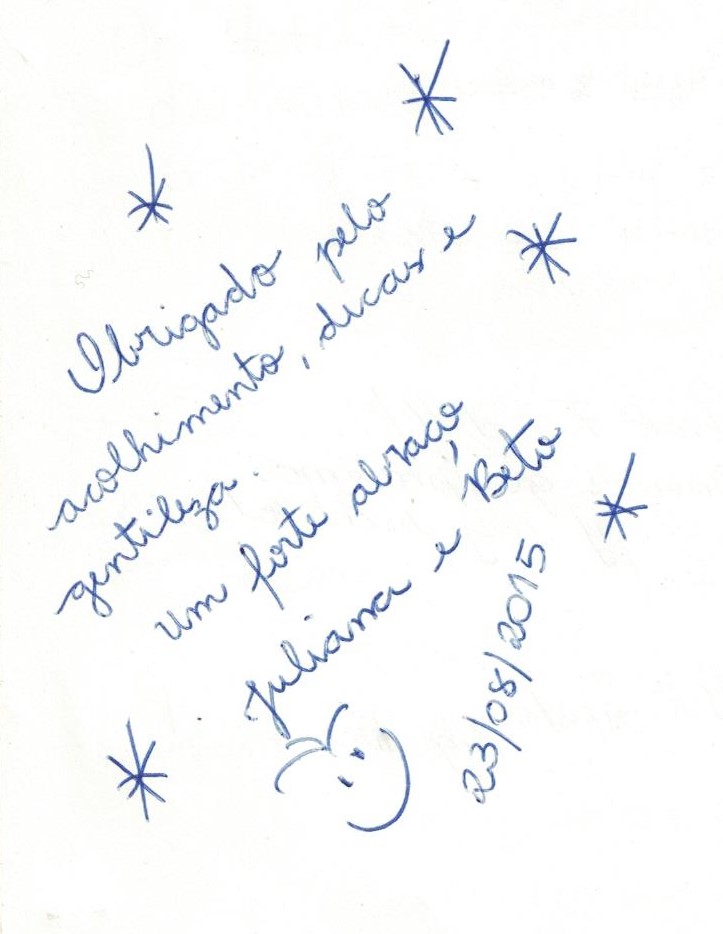 Obrigado pelo
acolhimento, dicas e
gentileza.
um forte abraço
Juliana e Beto
23/08/2015